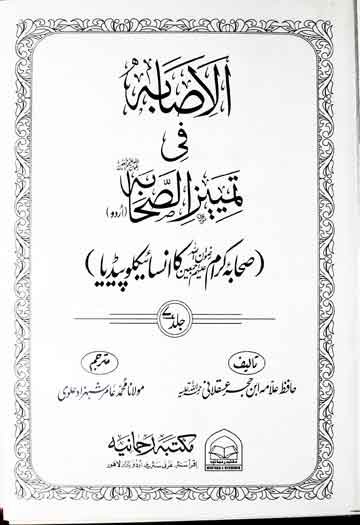 الاصابہ
فی
تمییز الصحابہ (اردو)
(صحابہ کرام رضوان اللہ علیہم اجمعین کا انسائیکلوپیڈیا)
جلد
تالیف
حافظ علامہ ابن حجر عسقلانی رحمۃ اللہ علیہ
مترجم
مولانا محمد عامر شہزاد علوی
مکتبہ رحمانیہ
اقرأ سنٹر غزنی سٹریٹ اردو بازار لاہور